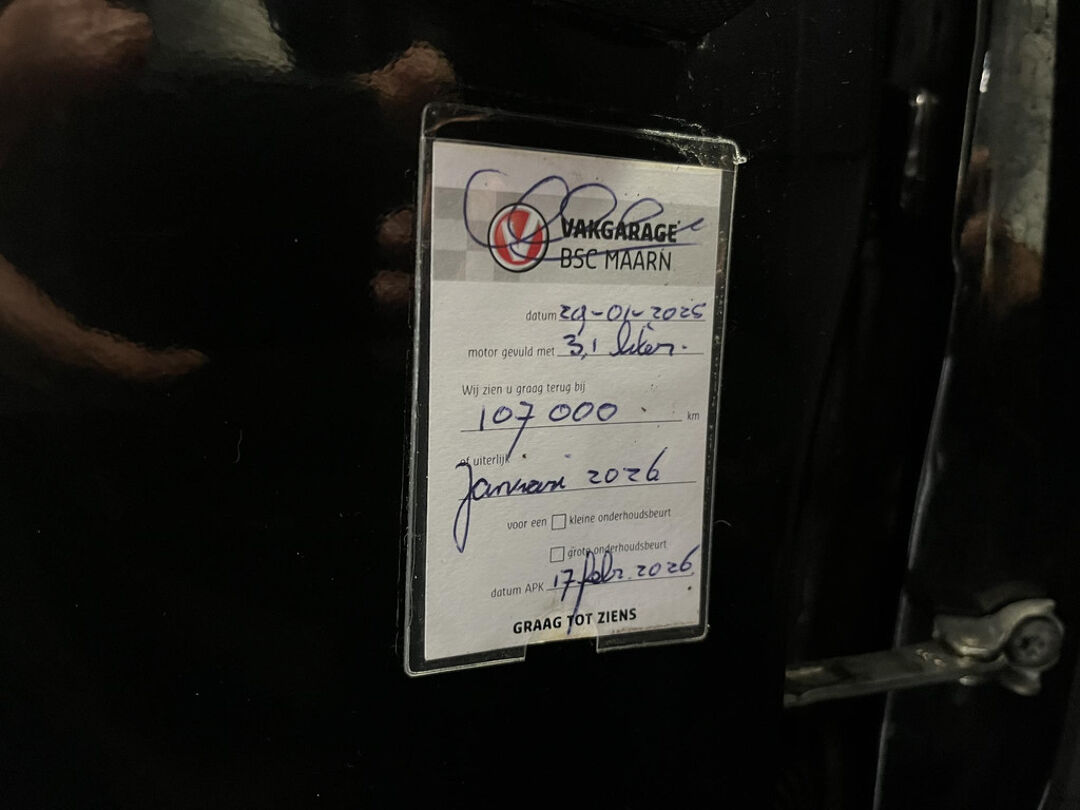 VAKGARAGE
BSC MAARN
datum 29-01-2025
motor gevuld met 3,1 liter.
Wij zien u graag terug bij
107 000 km
of uiterlijk
Januari 2026
voor een kleine onderhoudsbeurt
grote onderhoudsbeurt
datum APK 17 febr. 2026
GRAAG TOT ZIENS